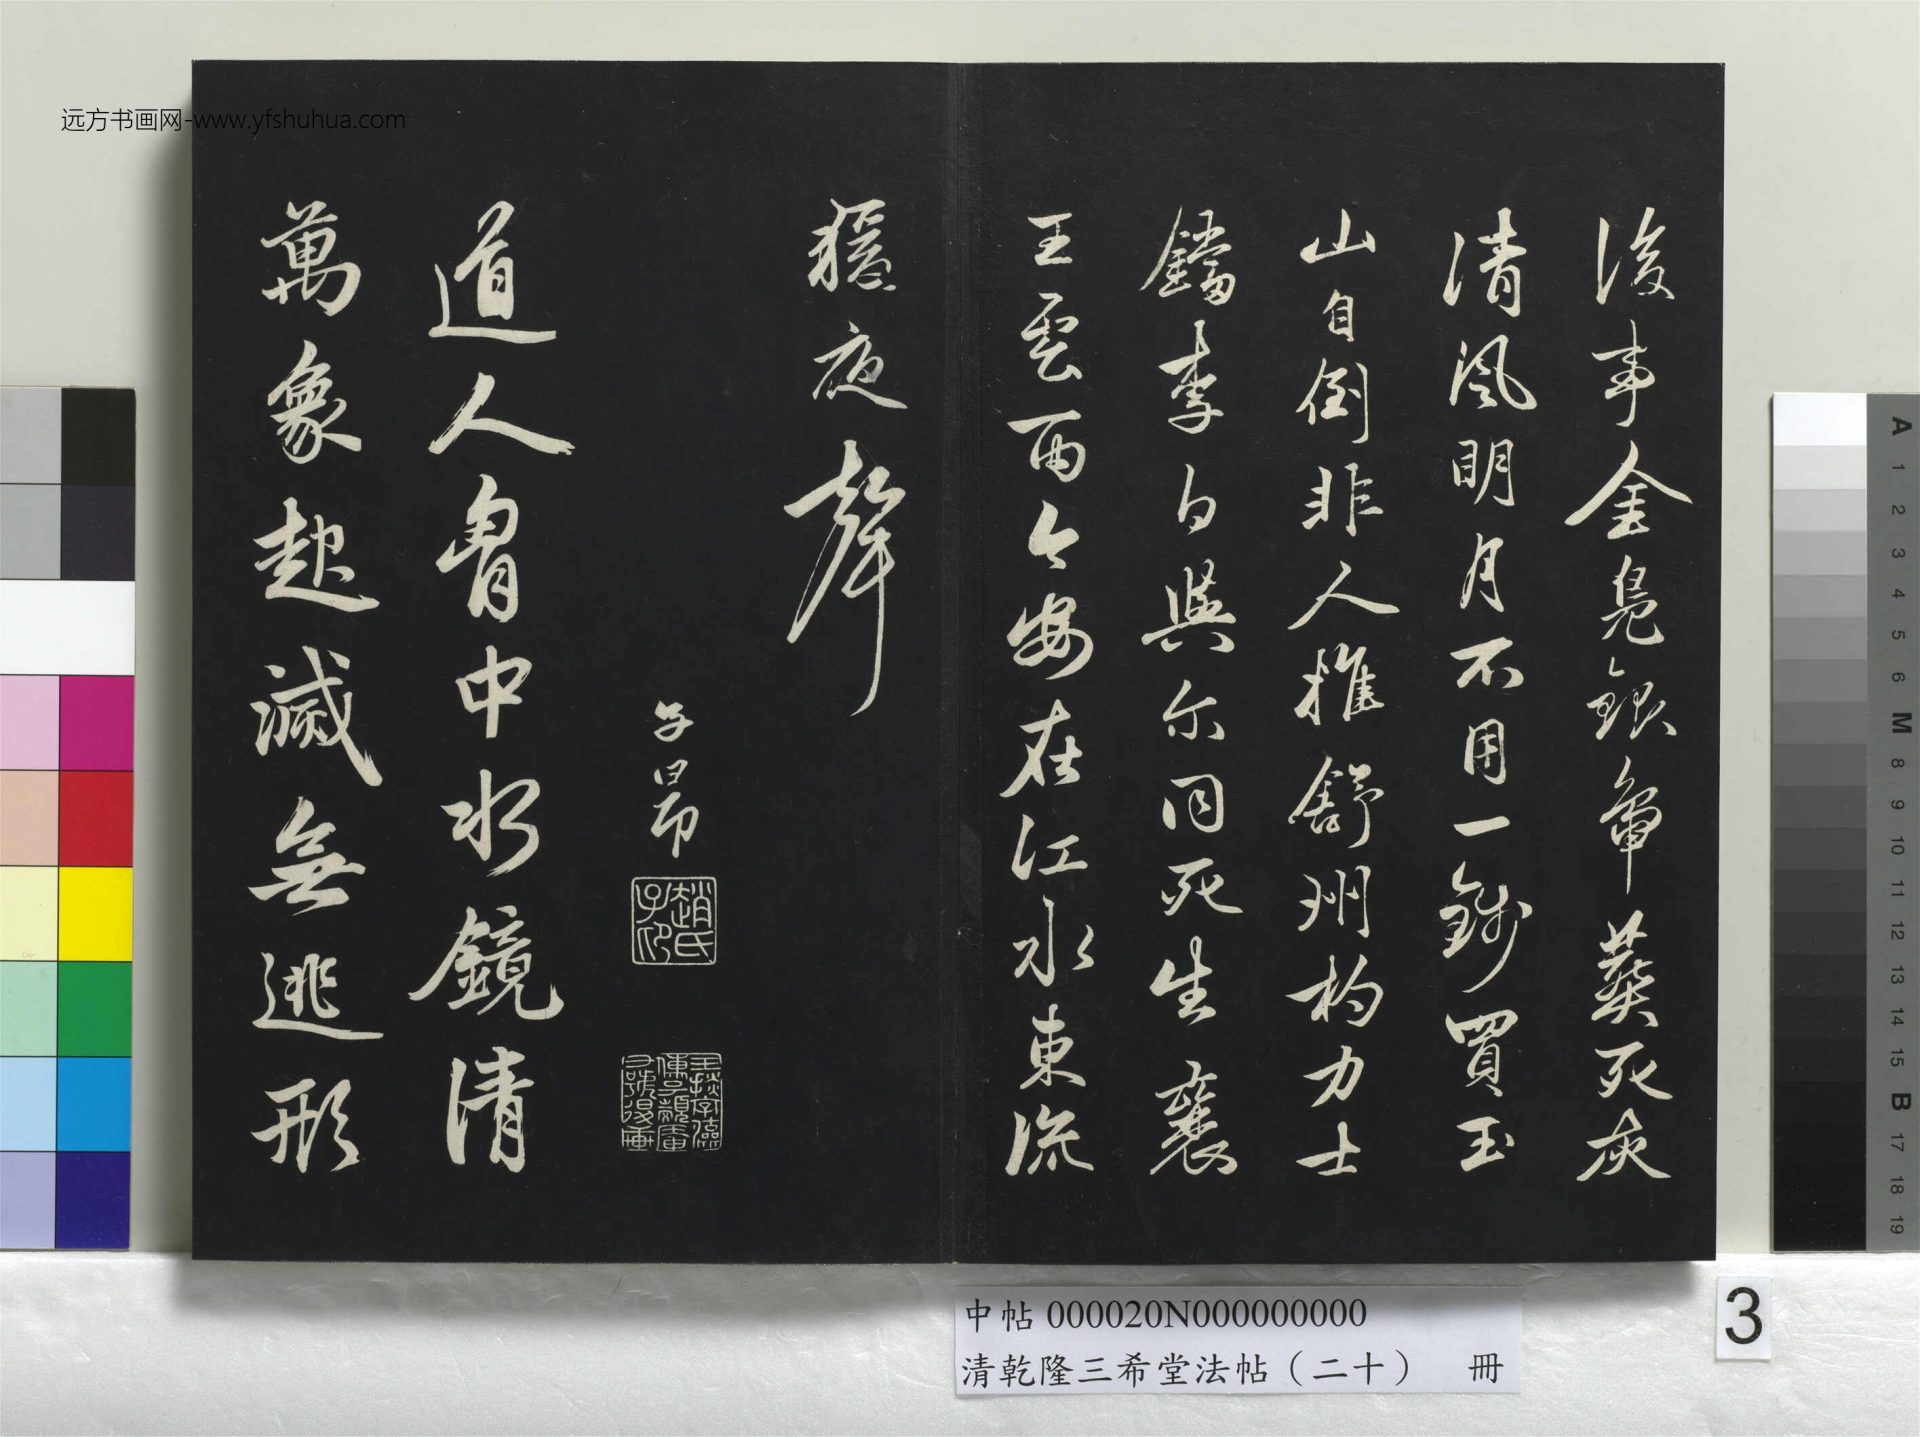 远方书画网-www.yfshuhua.com
後事金鳧銀鴨葬死灰
清風明月不用一錢買玉
山自倒非人推舒州杓力士
鐺李白與尔同死生襄
王雲雨今安在江水東流
猨夜聲
子昂
趙氏子昂
道人胷中水鏡清
萬象起滅無逃形
中帖 000020N000000000
清乾隆三希堂法帖（二十） 冊
3
A 1 2 3 4 5 6 M 8 9 10 11 12 13 14 15 B 17 18 19